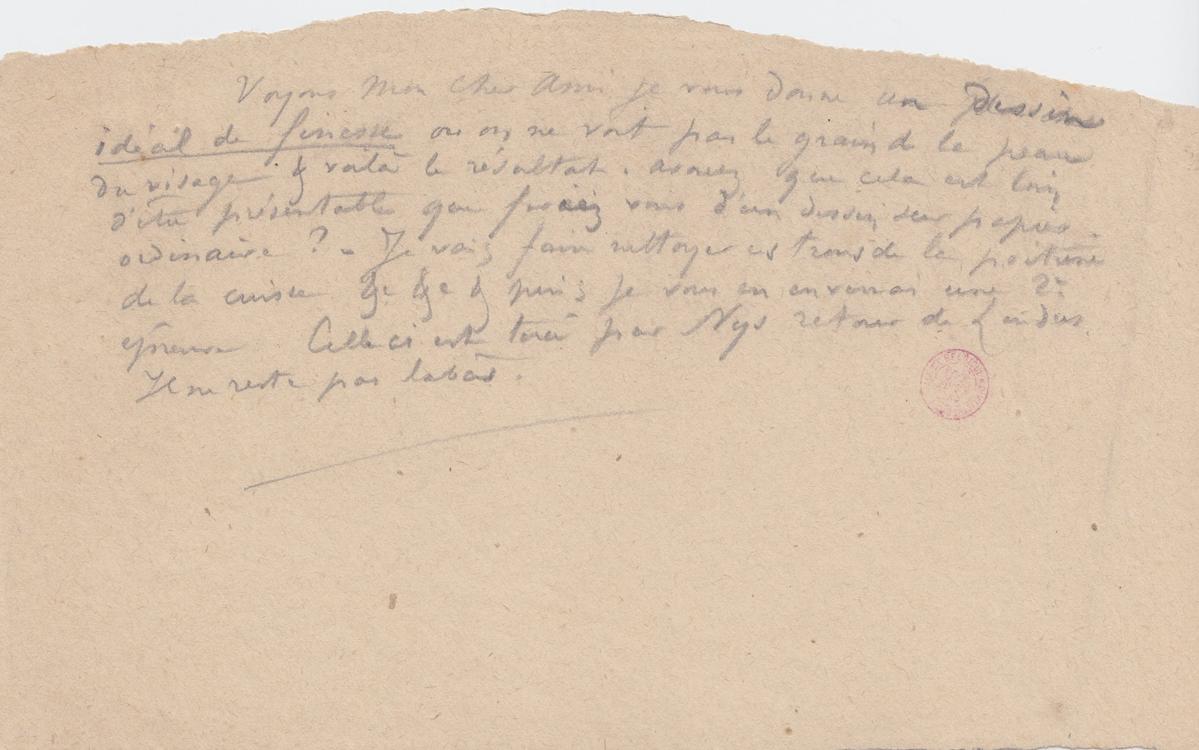 Voyons mon cher Ami je vous donne un Dessin
idéal de finesse ou on ne voit pas le grain de la peau
du visage & voilà le résultat. avouez que cela est loin
d'être présentable que feriez vous d'un dessin sur papier
ordinaire ? - Je vais faire nettoyer ces trous de la poitrine
de la cuisse &c &c & puis je vous en enverrai une 2e
épreuve Celle ci est tirée par Nys retour de Londres.
Il ne reste pas labas.